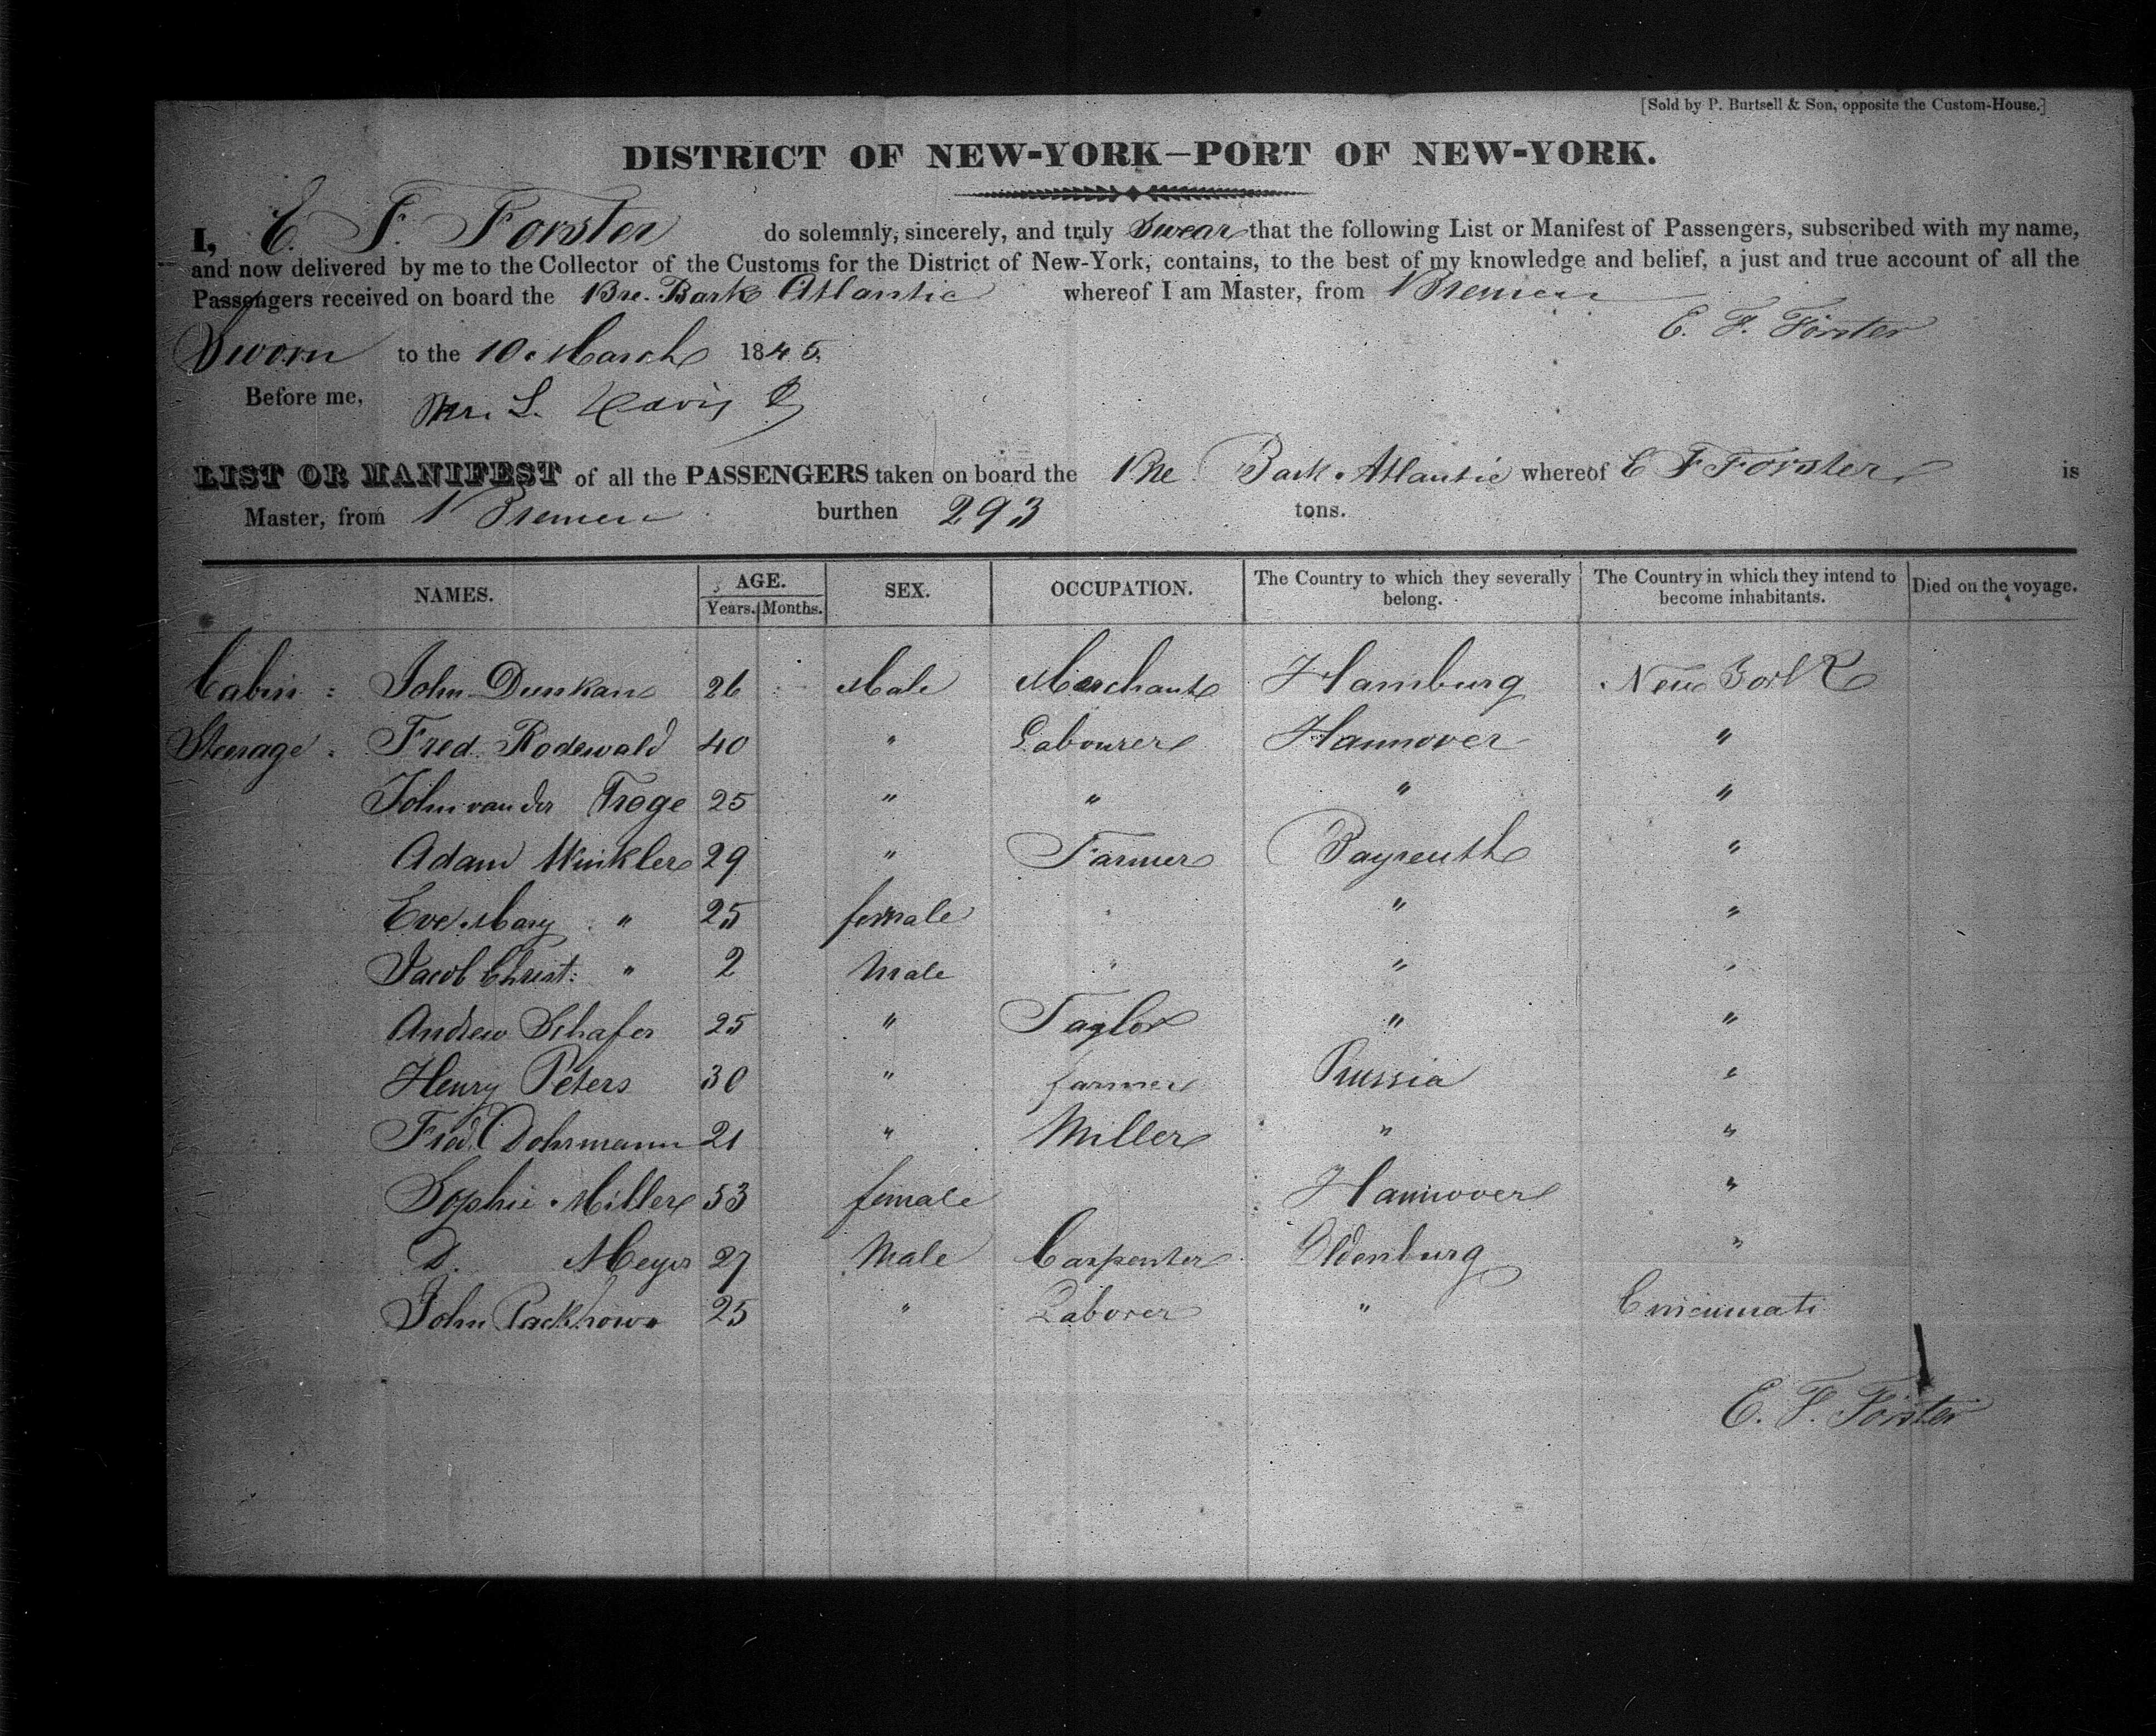 [Sold by P. Burtsell & Son, opposite the Custom-House.]
DISTRICT OF NEW-YORK—PORT OF NEW-YORK.
I, E. F. Forster do solemnly, sincerely, and truly Swear that the following List or Manifest of Passengers, subscribed with my name,
and now delivered by me to the Collector of the Customs for the District of New-York, contains, to the best of my knowledge and belief, a just and true account of all the
Passengers received on board the Bre. Bark Atlantic whereof I am Master, from Bremen
E. F. Förster
Sworn to the 10 March 1845.
Before me,
LIST OR MANIFEST of all the PASSENGERS taken on board the Bre Bark Atlantic whereof E F Forster is
Master, from Bremen burthen 293 tons.
NAMES. AGE. Years. Months. SEX. OCCUPATION. The Country to which they severally belong. The Country in which they intend to become inhabitants. Died on the voyage.
Cabin: John Dunkan 26 Male Merchant Hamburg New York
Steerage: Fred. Rodewald 40 " Labourer Hannover "
John van der Troge 25 " " " "
Adam Winkler 29 " Farmer Bayreuth "
Eve Mary " 25 female " "
Jacob Christ: " 2 Male " "
Andrew Schafer 25 " Taylor " "
Henry Peters 30 " farmer Prussia "
Fred. Dohrmann 21 " Miller " "
Sophie Miller 53 female Hannover "
D. Meyer 27 Male Carpenter Oldenburg "
John 25 " Laborer " Cincinnati
E. F. Förster